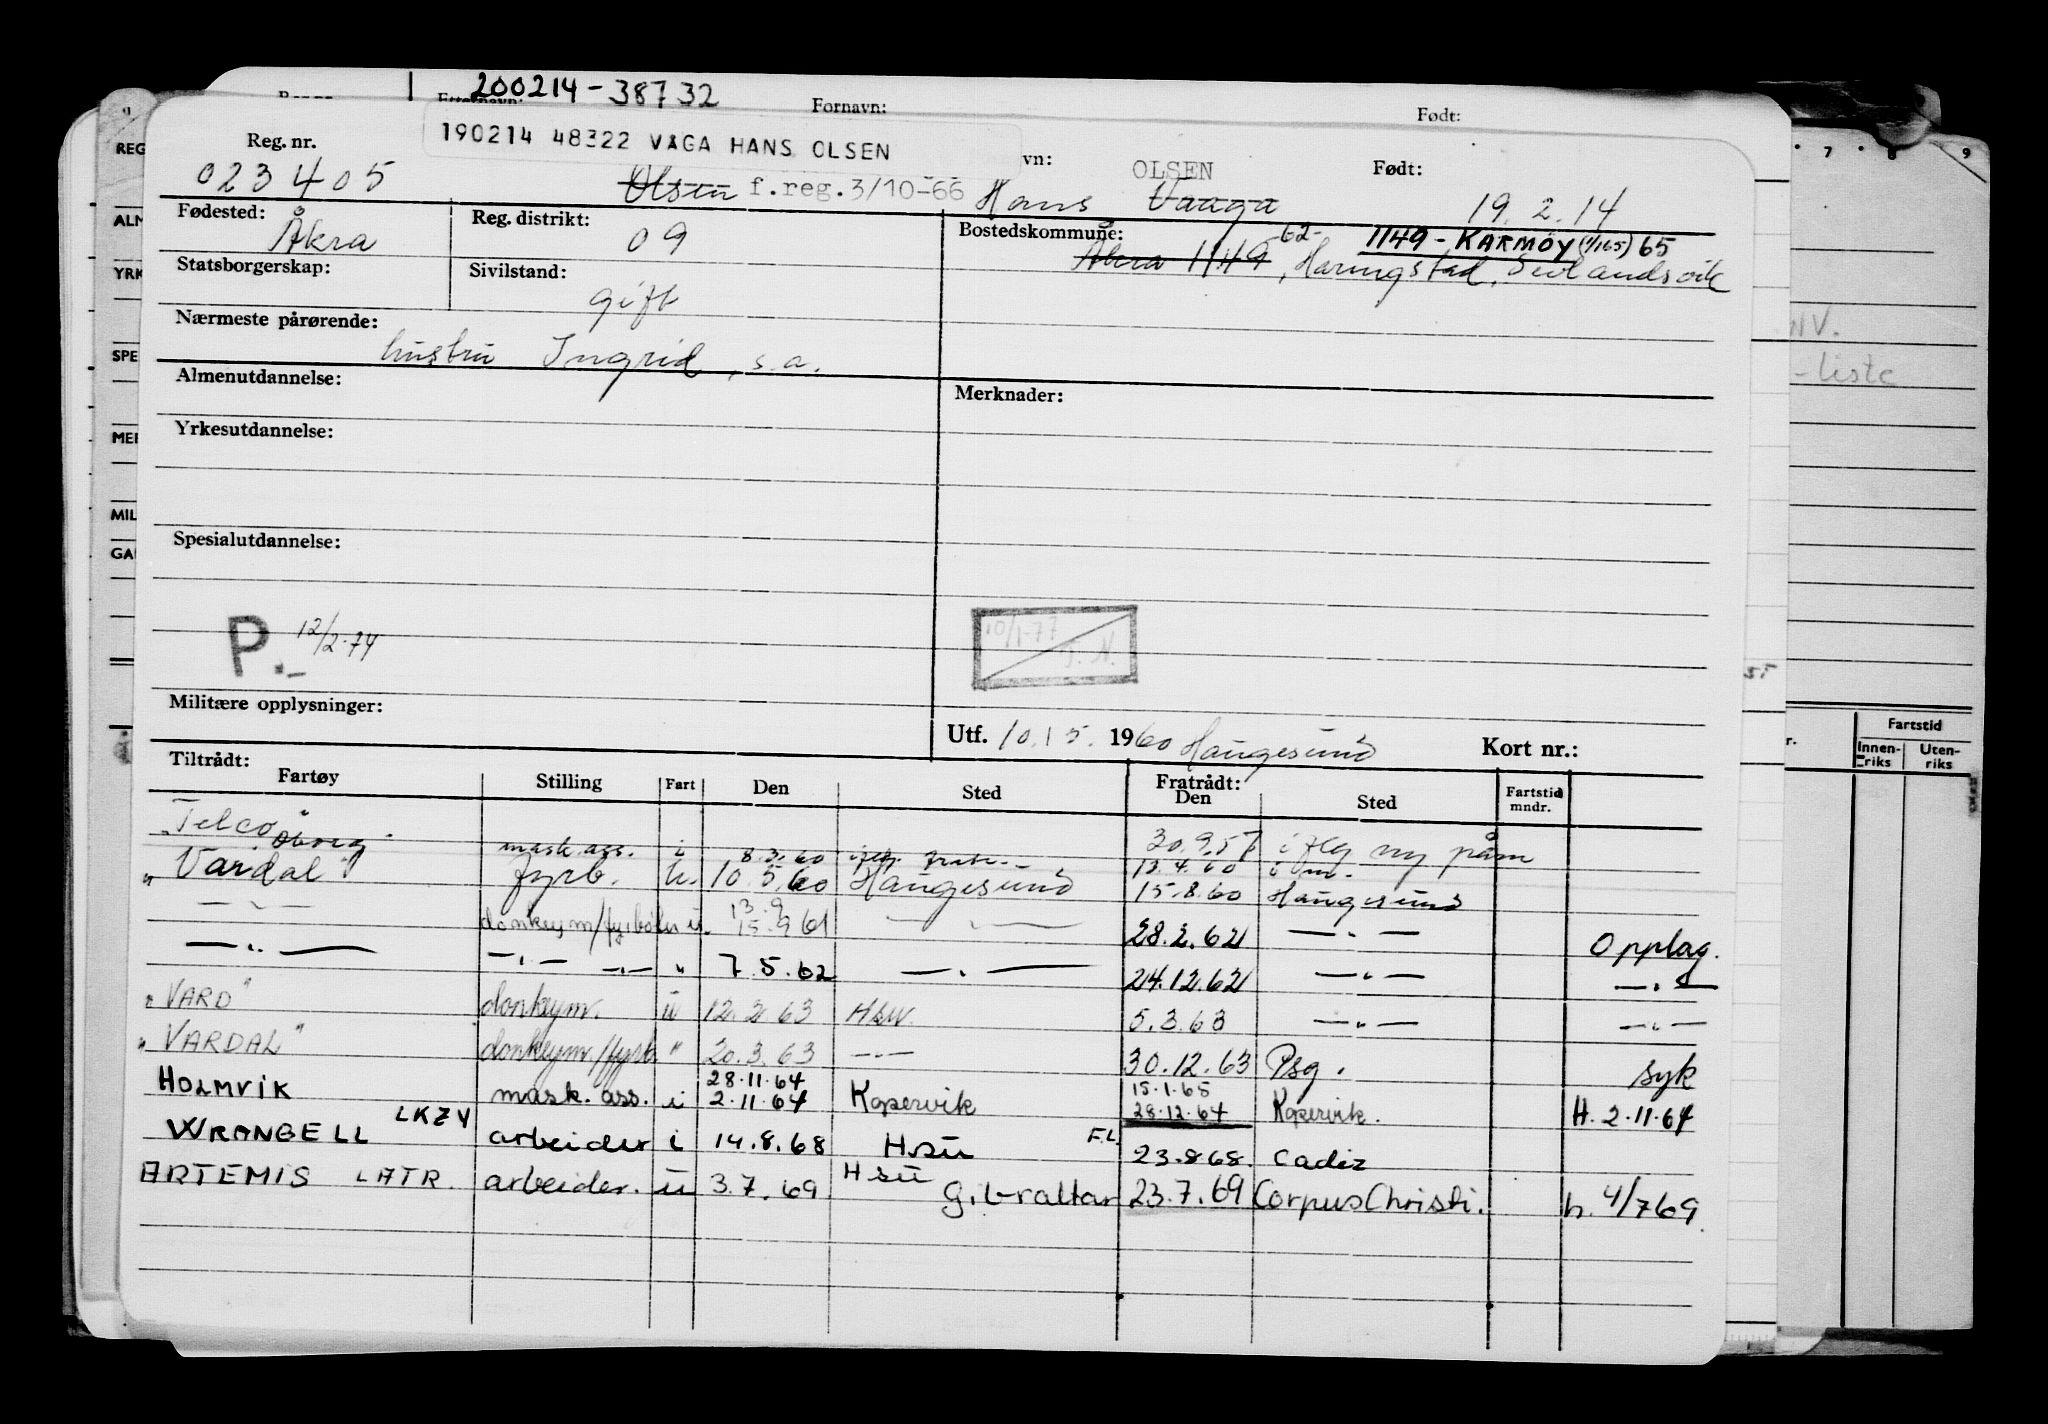 200214-38732
Etternavn: Fornavn: Født:
190214 48322 VÅGA HANS OLSEN
Reg. nr. vn: OLSEN Født:
023405 Olsen f.reg.3/10-66 Hans Vaaga 19.2.14
Fødested: Åkra Reg. distrikt: 09 Bostedskommune: -62- 1149-KARMÖY (1/165) 65
Åkra 1149, Haringstad, Sevlandsvik
Statsborgerskap: Sivilstand: gift
Nærmeste pårørende: hustru Ingrid, s.a.
Almenutdannelse: Merknader:
Yrkesutdannelse:
Spesialutdannelse:
P.- 12/2-74 10/1-77 T.N.
Militære opplysninger:
Utf. 10.15. 1960 Haugesund Kort nr.:
Tiltrådt: Fratrådt:
Fartøy Stilling Fart Den Sted Den Sted Fartstid mndr.
Telco 30.9.57 ifлg ny påm
mask.ass. i 8.3.60 13.4.60
"Vardal" fyrb. u. 10.5.60 Haugesund 15.8.60 Haugesund
—"— donkeym/fyrbøter u. 13.9 15.9 61 —"— 28.2.62 —"— Opplag.
—"— —"— —"— " 7.5.62 —"— 24.12.62 —"— —"—
"VARD" donkeym. u 12.2.63 Hsu. 5.3.63 —"— —"—
"VARDAL" donkeym./fyrb. " 20.3.63 —"— 30.12.63 Psg. syk
28.11.64 15.1.65
HOLMVIK mask. ass. i 2.11.64 Kopervik 28.12.64 Kopervik. H. 2.11.64
WRANGELL LKZY arbeider i 14.8.68 Hsu F.L. 23.8.68. Cadiz
ARTEMIS LATR. arbeider. u 3.7.69 Hsu Gibraltar 23.7.69 Corpus Christi. h. 4/7 69.
REG
YRK
SPE
MIL
7 8 9
NV.
-liste
Fartstid
Innen-
riks
Uten-
riks